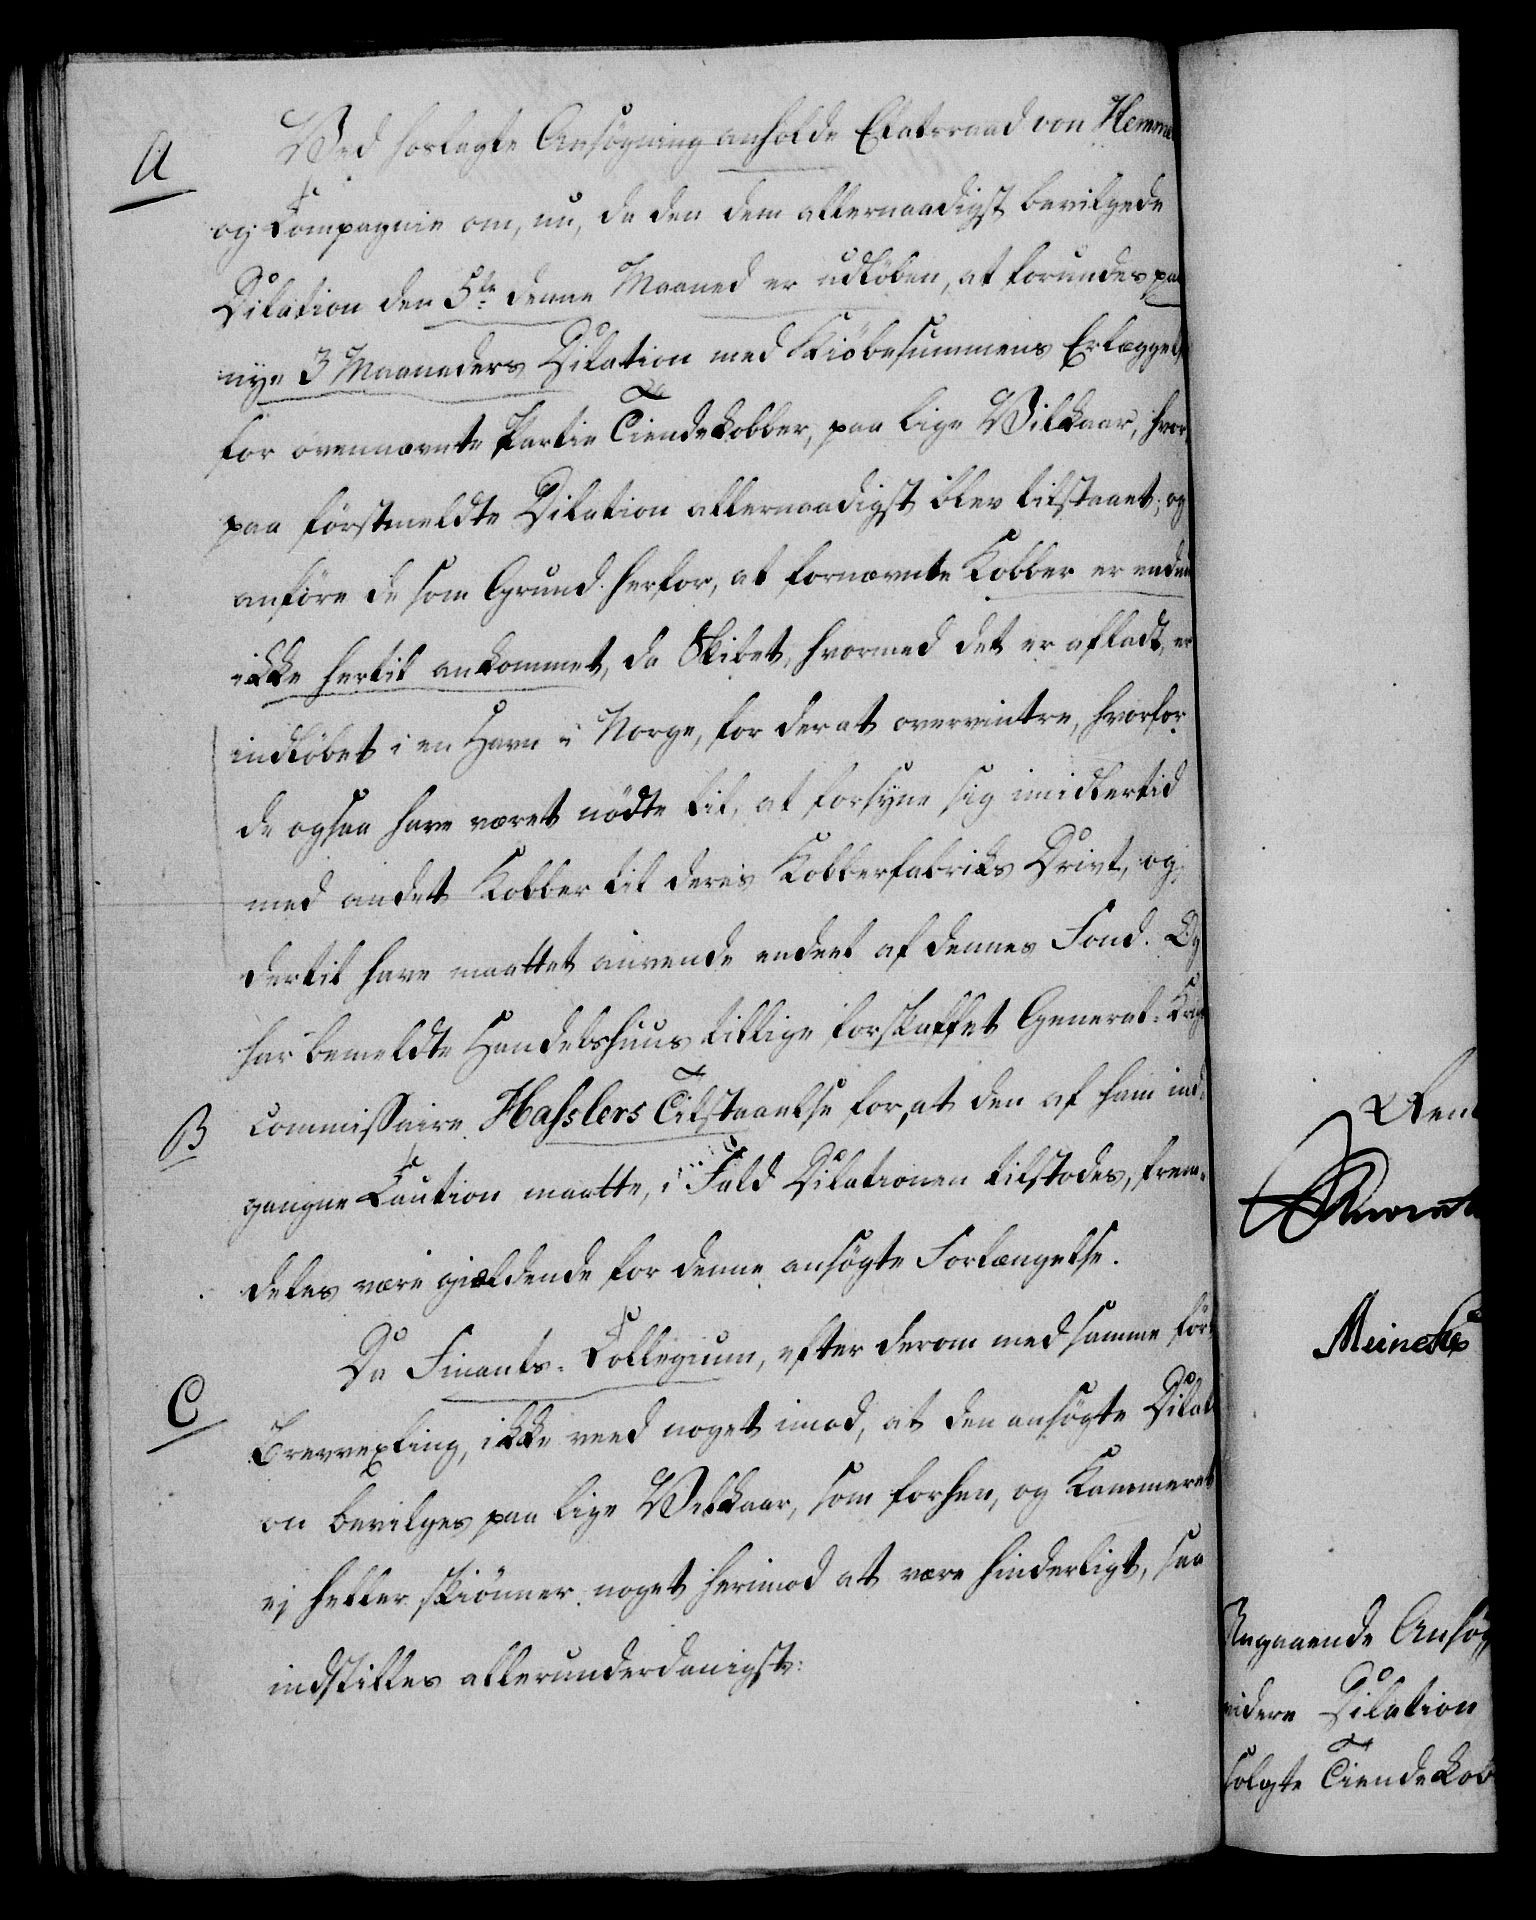 A
Ved hoslagte Ansøgning anholde Etatsraad von Hemme
og Compagnie om, nu, da den dem allernaadigst bevilgede
Dilation den 5te denne Maaned er udløben, at forundes paa
nye 3 Maaneders Dilation med Kiøbesummens Erlæggelse
for ovennævnte Partie Tiendekobber, paa lige Vilkaar, hvor
paa førstmeldte Dilation allernaadigst blev tilstaaet; og
anføre de som Grund herfor, at fornævnte Kobber er endnu
ikke hertil ankommet, da Skibet, hvormed det er afladt, er
indløbet i en Havn i Norge, for der at overvintre, hvorfor
de ogsaa have været nødte til, at forsyne sig imidlertid
med andet Kobber til deres Kobberfabriks Drivt, og
dertil have maattet anvende endeel af dennes Fond. Og
har bemeldte Handelshuus tillige forskaffet General-Krigs
B
Commissaire Hasslers Tilstaaelse for, at den af ham ind-
gangne Caution maatte, i Fald Dilationen tilstodes, frem-
deles være gieldende for denne ansøgte Forlængelse.
Da Finants-Collegium, efter derom med samme ført
C
Brevvexling, ikke veed noget imod, at den ansøgte Dilati
on bevilges paa lige Vilkaar, som forhen, og Kammeret
ej heller skiønner noget herimod at være hinderligt, saa
indstilles allerunderdanigst:
Rent
Meincke
Angaaende Ansøg
videre Dilation
solgte Tiendekob